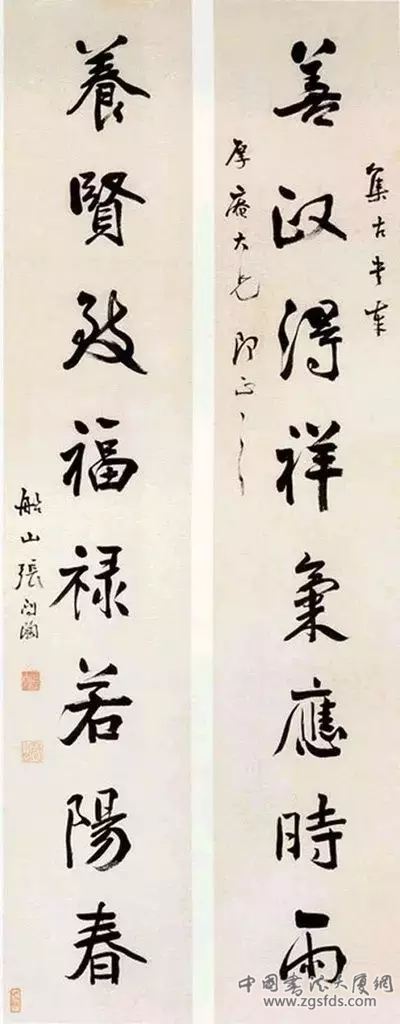 集古
善政得祥氣應時雨
厚庵大兄即正
養賢致福禄若陽春
船山張問陶
中國書法大厦網
www.zgsfds.com